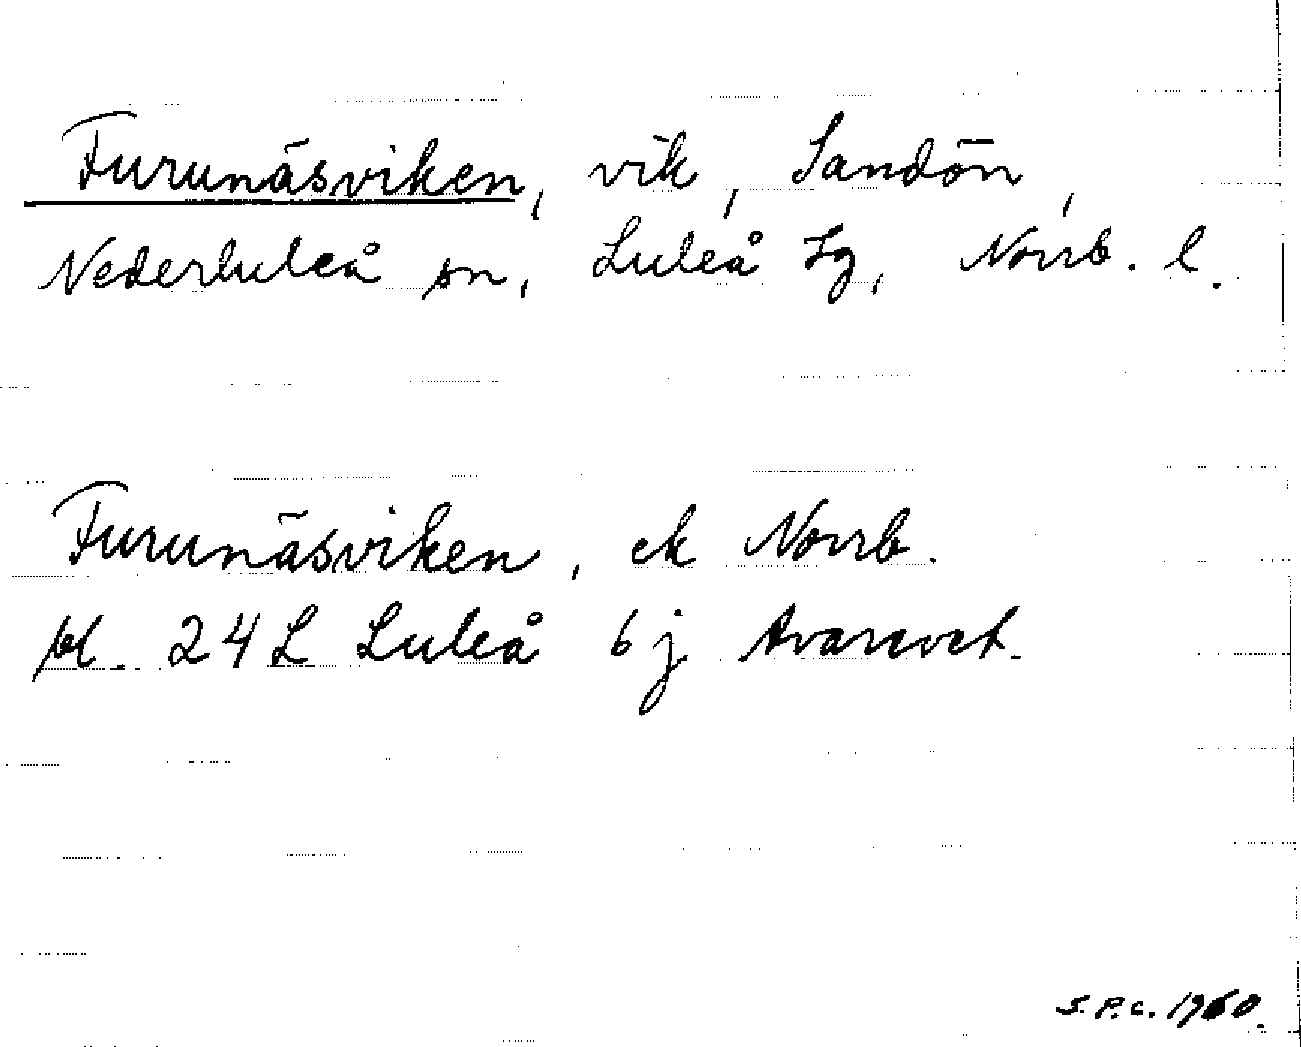 Furunäsviken, vik, Sandön,
Nederluleå sn, Luleå tg, Norrb. l.
Furunäsviken, ek Norrb.
bl. 24 L Luleå 6 j Avarevet.
S.P.C. 1960.